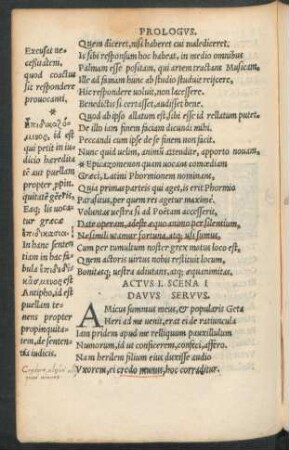 PROLOGVS.
Quem diceret, nisi haberet cui malediceret.
Is sibi responsum hoc habeat, in medio omnibus
Palmam esse positam, qui artem tractent Musicam.
Ille ad famam hunc ab studio studuit reijcere,
Hic respondere voluit, non lacessere.
Benedictis si certasset, audisset bene.
Quod ab ipso allatum est, sibi esse id relatum putet.
De illo iam finem faciam dicundi mihi,
Peccandi cum ipse de se finem non facit.
Nunc quid uelim, animū attendite, apporto nouam
* Epicazomenon quam uocant comœdiam
Græci, Latini Phormionem nominant,
Quia primas parteis qui aget, is erit Phormio
Parasitus, per quem res agetur maximè.
Voluntas uestra si ad Poëtam accesserit,
Date operam, adeste æquo animo per silentium,
Ne simili utamur fortuna, atq; usi sumus,
Cum per tumultum noster grex motus loco est,
Quem actoris uirtus nobis restituit locum,
Bonitasq; uestra adiutans, atq; æquanimitas.
ACTVS I. SCENA I
DAVVS SERVVS.
AMicus summus meus, & popularis Geta
Heri ad me uenit, erat ei de ratiuncula
Iam pridem apud me relliquum pauxillulum
Nummorum, id ut conficerem, confeci, affero.
Nam herilem filium eius duxisse audio
Vxorem, ei credo munus, hoc corraditur.
Excusat ne-
cessitatem,
quod coactus
sit respondere
prouocanti,
*
id est
qui petit in
iudicio heredita
tē aut puellam
propter
Eaq; lis uoca
tur græcè
In hanc senten
tiam in hac
est
Antipho, id est
puellam te-
nens propter
propinquita-
tem, de senten-
tia iudicis.